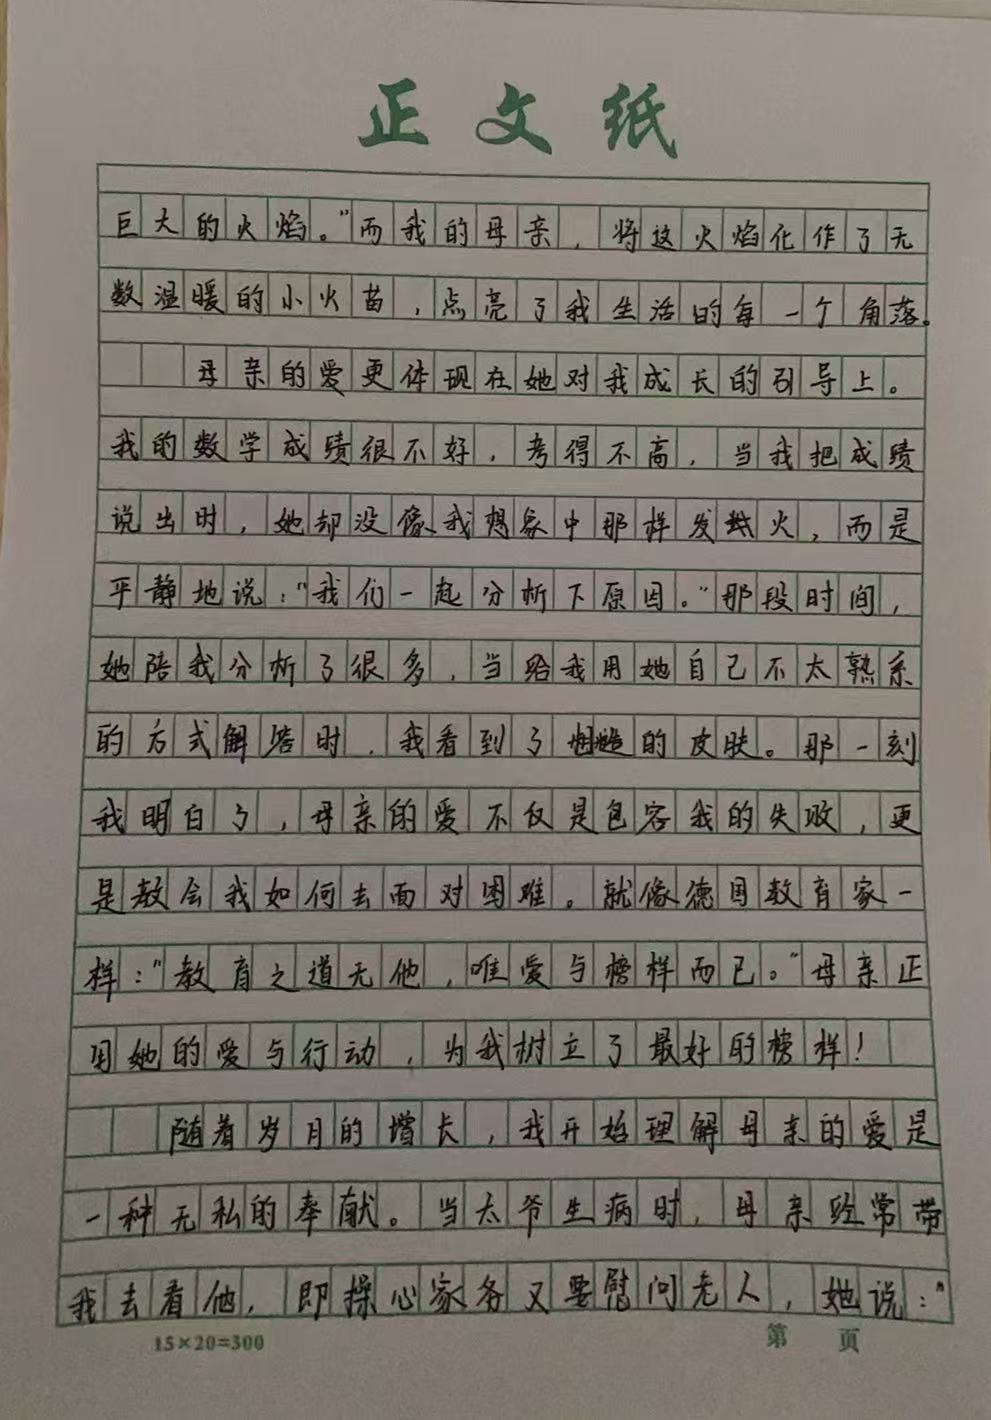 正文纸
巨大的火焰。"而我的母亲，将这火焰化作了无
数温暖的小火苗，点亮了我生活的每一个角落。
母亲的爱更体现在她对我成长的引导上。
我的数学成绩很不好，考得不高，当我把成绩
说出时，她却没像我想象中那样发火，而是
平静地说："我们一起分析下原因。"那段时间，
她陪我分析了很多，当给我用她自己不太熟系
的方式解答时，我看到了的皮肤。那一刻
我明白了，母亲的爱不仅是包容我的失败，更
是教会我如何去面对困难。就像德国教育家一
样："教育之道无他，唯爱与榜样而已。"母亲正
用她的爱与行动，为我树立了最好的榜样！
随着岁月的增长，我开始理解母亲的爱是
一种无私的奉献。当太爷生病时，母亲经常带
我去看他，即操心家务又要慰问老人，她说："
15×20=300
第 页